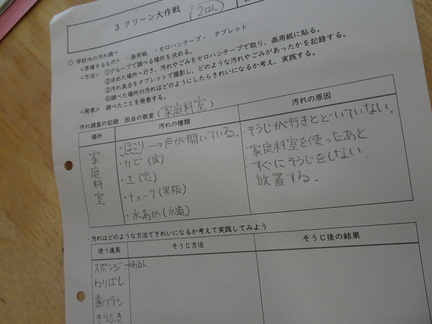 3.クリーン大作戦 (2はん)
① 学校内の汚れ調べ
<準備するもの> ・画用紙 ・セロハンテープ ・タブレット
<方法> ①グループで調べる場所を決める。
②決めた場所へ行き、汚れやごみをセロハンテープで取り、画用紙に貼る。
③汚れ具合をタブレットで撮影し、どのような汚れやごみがあったかを記録する。
④調べた場所の汚れはどのようにしたらきれいになるか考え、実践する。
<発表> 調べたことを発表する。
・汚れ調査の記録 担当の教室(家庭科室)
場所 汚れの種類 汚れの原因
家庭科室
・ほこり→戸が開いている。
・カビ(床)
・土(窓)
・チョーク(黒板)
・水あか(水道)
・そうじが行きとどいていない。
・家庭科室を使ったあと
すぐにそうじをしない
放置する。
・汚れはどのような方法できれいになるか考えて実践してみよう
使う道具 そうじ方法 そうじ後の結果
スポンジ
わりばし
歯ブラシ
きりふき